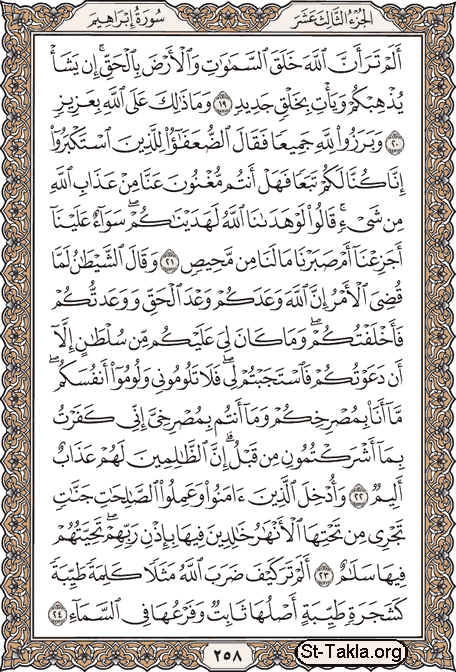 الجزء الثالث عشر
سورة إبراهيم
أَلَمْ تَرَ أَنَّ ٱللَّهَ خَلَقَ ٱلسَّمَٰوَٰتِ وَٱلْأَرْضَ بِٱلْحَقِّ ۚ إِن يَشَأْ
يُذْهِبْكُمْ وَيَأْتِ بِخَلْقٍ جَدِيدٍ ١٩ وَمَا ذَٰلِكَ عَلَى ٱللَّهِ بِعَزِيزٍ
٢٠ وَبَرَزُوا۟ لِلَّهِ جَمِيعًا فَقَالَ ٱلضُّعَفَٰٓؤُا۟ لِلَّذِينَ ٱسْتَكْبَرُوٓا۟
إِنَّا كُنَّا لَكُمْ تَبَعًا فَهَلْ أَنتُم مُّغْنُونَ عَنَّا مِنْ عَذَابِ ٱللَّهِ
مِن شَىْءٍ ۚ قَالُوا۟ لَوْ هَدَىٰنَا ٱللَّهُ لَهَدَيْنَٰكُمْ ۖ سَوَآءٌ عَلَيْنَآ
أَجَزِعْنَآ أَمْ صَبَرْنَا مَا لَنَا مِن مَّحِيصٍ ٢١ وَقَالَ ٱلشَّيْطَٰنُ لَمَّا
قُضِىَ ٱلْأَمْرُ إِنَّ ٱللَّهَ وَعَدَكُمْ وَعْدَ ٱلْحَقِّ وَوَعَدتُّكُمْ
فَأَخْلَفْتُكُمْ ۖ وَمَا كَانَ لِىَ عَلَيْكُم مِّن سُلْطَٰنٍ إِلَّآ
أَن دَعَوْتُكُمْ فَٱسْتَجَبْتُمْ لِى ۖ فَلَا تَلُومُونِى وَلُومُوٓا۟ أَنفُسَكُم ۖ
مَّآ أَنَا۠ بِمُصْرِخِكُمْ وَمَآ أَنتُم بِمُصْرِخِىَّ ۖ إِنِّى كَفَرْتُ
بِمَآ أَشْرَكْتُمُونِ مِن قَبْلُ ۗ إِنَّ ٱلظَّٰلِمِينَ لَهُمْ عَذَابٌ
أَلِيمٌ ٢٢ وَأُدْخِلَ ٱلَّذِينَ ءَامَنُوا۟ وَعَمِلُوا۟ ٱلصَّٰلِحَٰتِ جَنَّٰتٍ
تَجْرِى مِن تَحْتِهَا ٱلْأَنْهَٰرُ خَٰلِدِينَ فِيهَا بِإِذْنِ رَبِّهِمْ ۖ تَحِيَّتُهُمْ
فِيهَا سَلَٰمٌ ٢٣ أَلَمْ تَرَ كَيْفَ ضَرَبَ ٱللَّهُ مَثَلًا كَلِمَةً طَيِّبَةً
كَشَجَرَةٍ طَيِّبَةٍ أَصْلُهَا ثَابِتٌ وَفَرْعُهَا فِى ٱلسَّمَآءِ ٢٤
٢٥٨
St-Takla.org